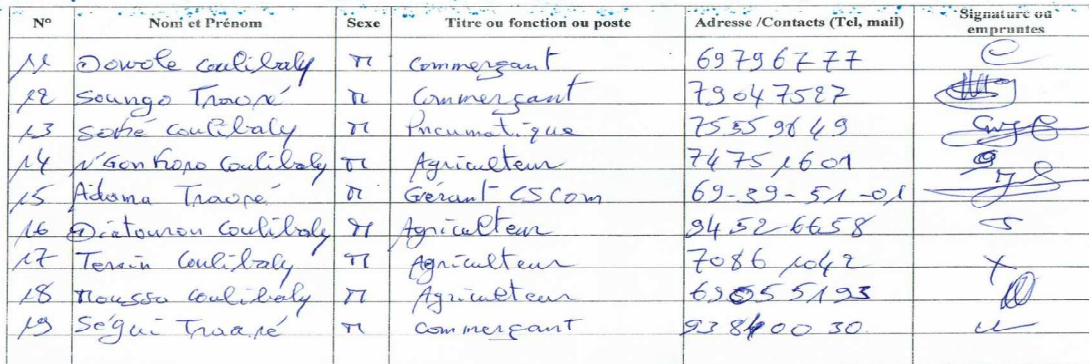 N° Nom et Prénom Sexe Titre ou fonction ou poste Adresse /Contacts (Tel, mail) Signature ou empruntes
11 Dowole Coulibaly M Commerçant 69796777
12 Soungo Traoré M Commerçant 79047527
13 Seké Coulibaly M Pneumatique 75559649
14 N'Gonkoro Coulibaly M Agriculteur 74751601
15 Adama Traoré M Gérant CSCom 69-39-51-01
16 Diatourou Coulibaly M Agriculteur 94526658
17 Tensin Coulibaly M Agriculteur 70861042
18 Moussa Coulibaly M Agriculteur 69055193
19 Ségui Traoré M Commerçant 93840030